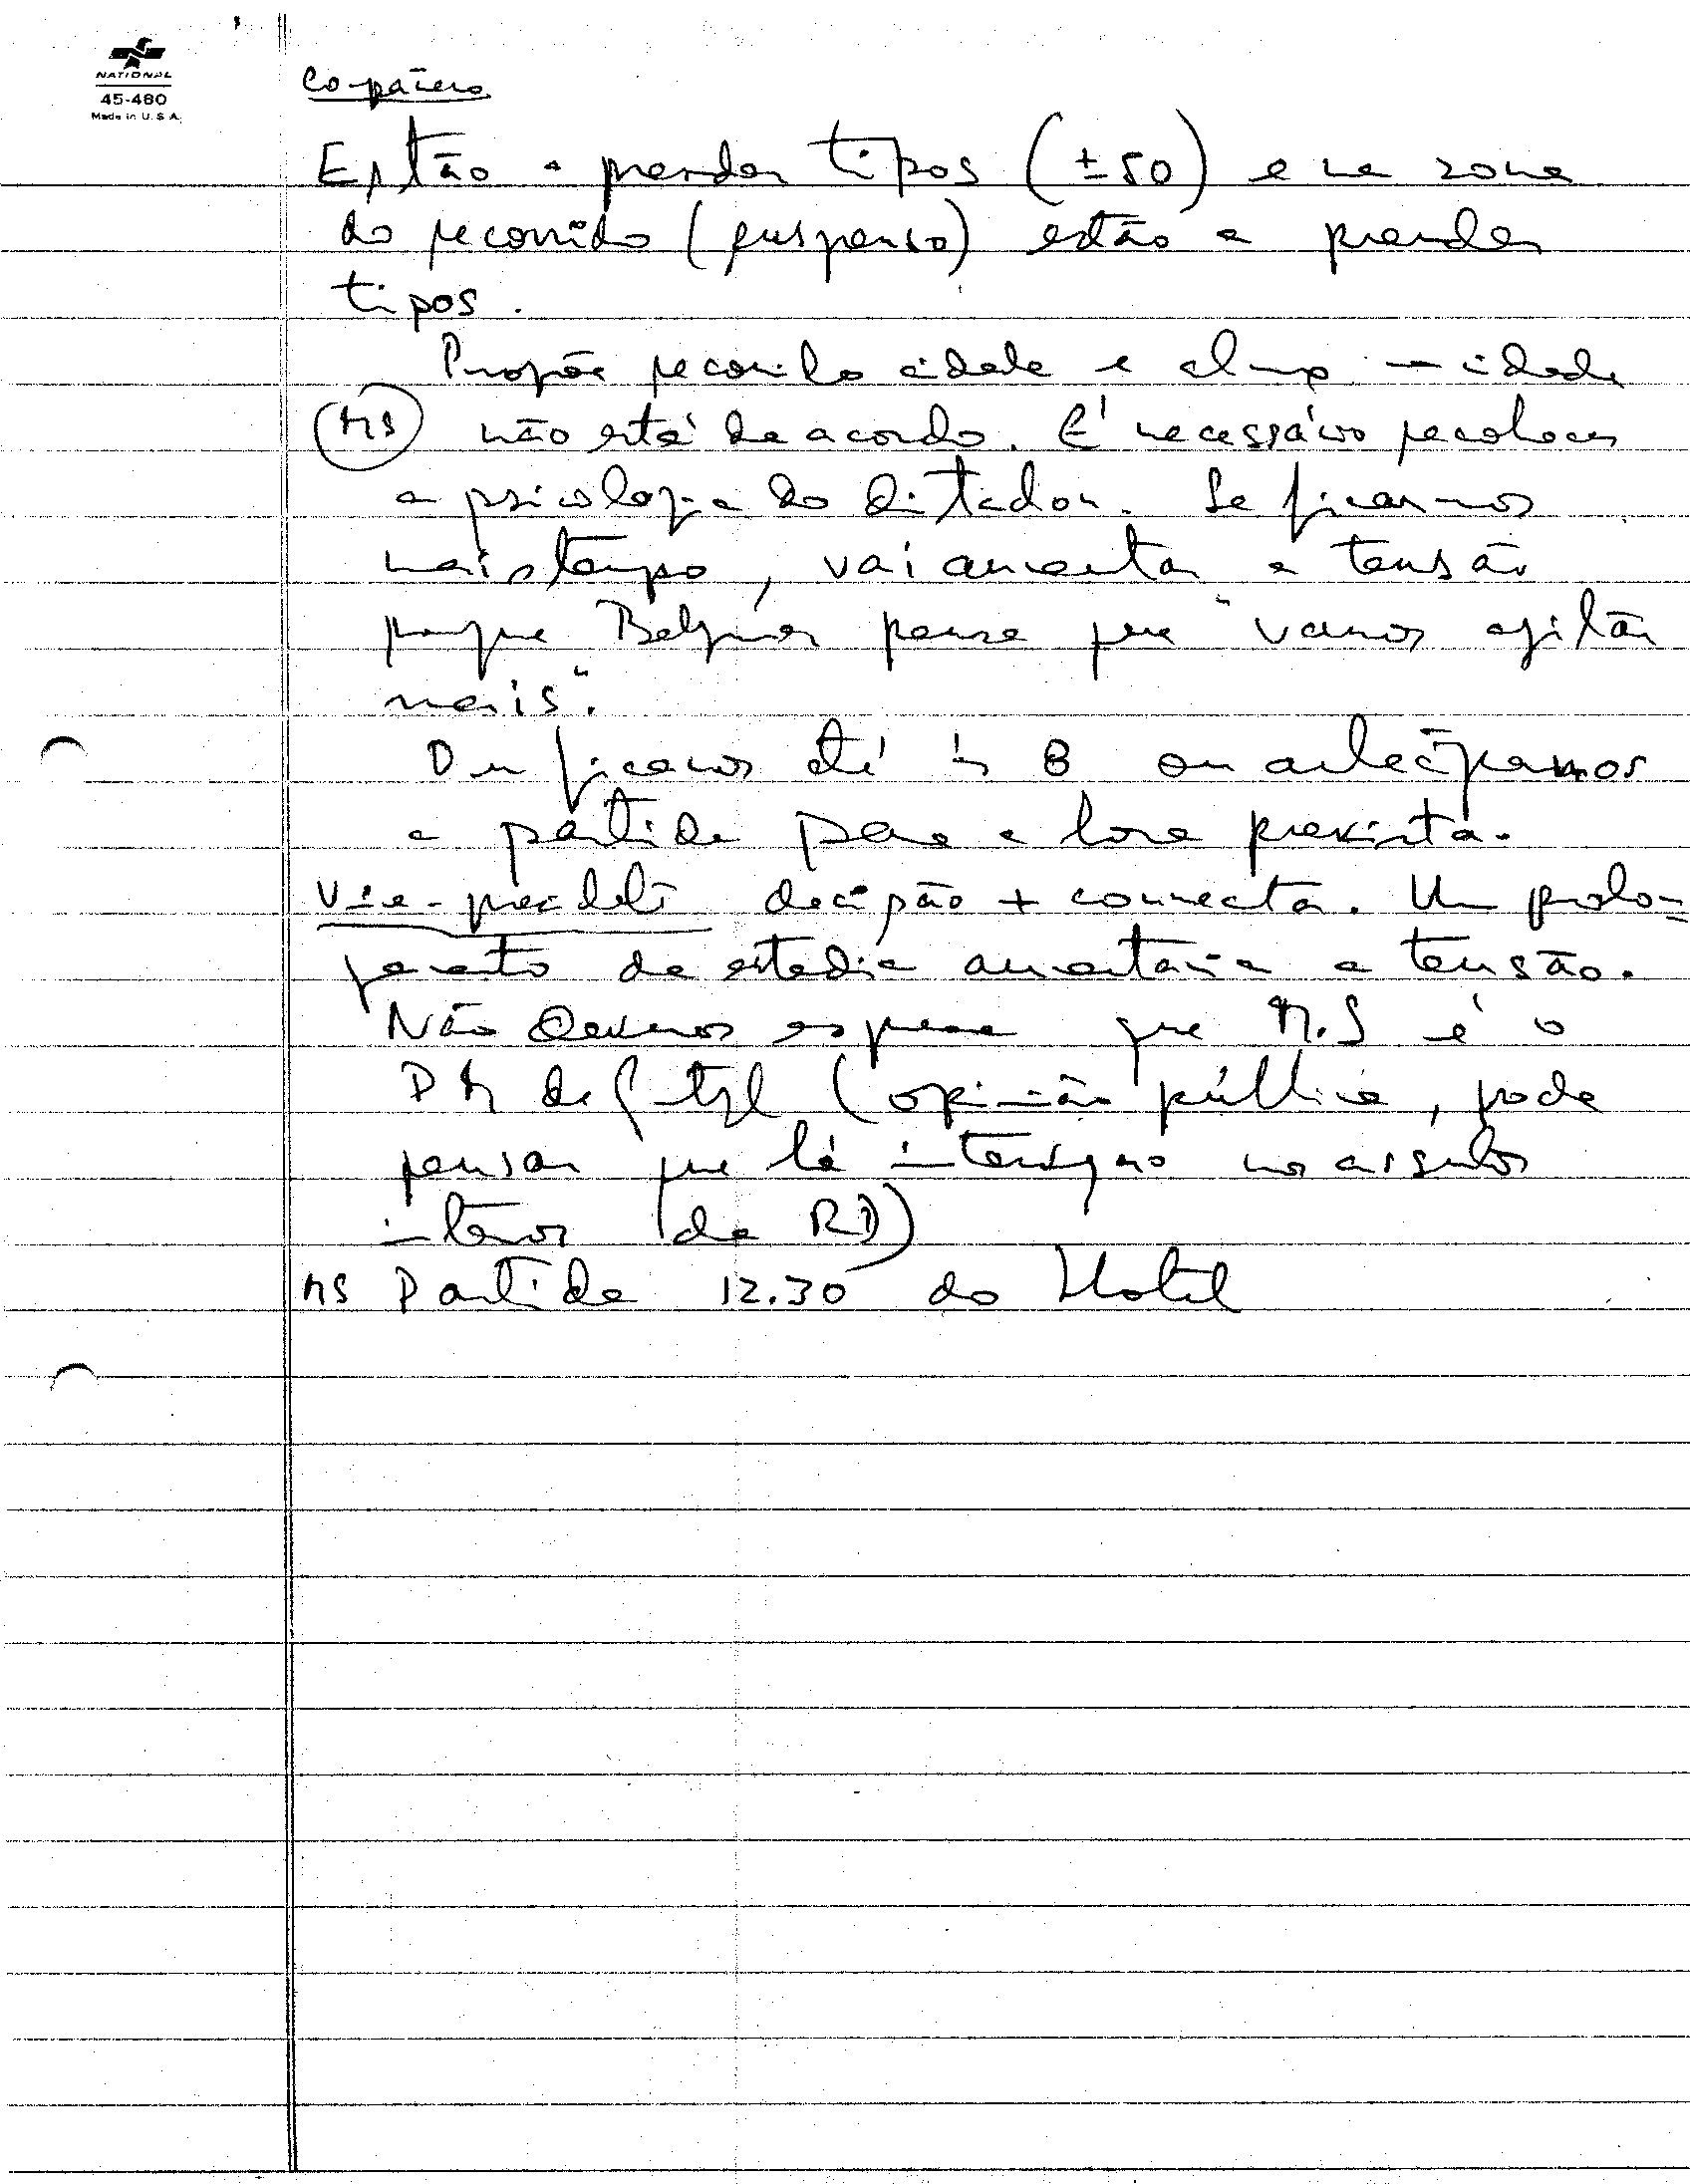 NATIONAL
45-480
Made in U.S.A.
Compañero
Estão a prender tipos (±50) e na zona
do recorrido (suspenso) estão a prender
tipos.
Propõe recorrido cidade e almoço cidade
MS não está de acordo. É necessário
a psicologia do Ditador. Se ficarmos
mais tempo, vai aumentar a tensão
porque Balaguer pensa que "vamos agitar
mais".
Ou ficamos até às 8 ou antecipamos
a partida para a hora prevista.
Vice-president decisão + correcta. Um prolon
gamento da estadia aumentaria a tensão.
Não devemos esquecer que M.S é o
PM de Portugal (opinião pública, pode
pensar que há intervenção nos assuntos
internos da RD)
MS Partida 12.30 do Hotel